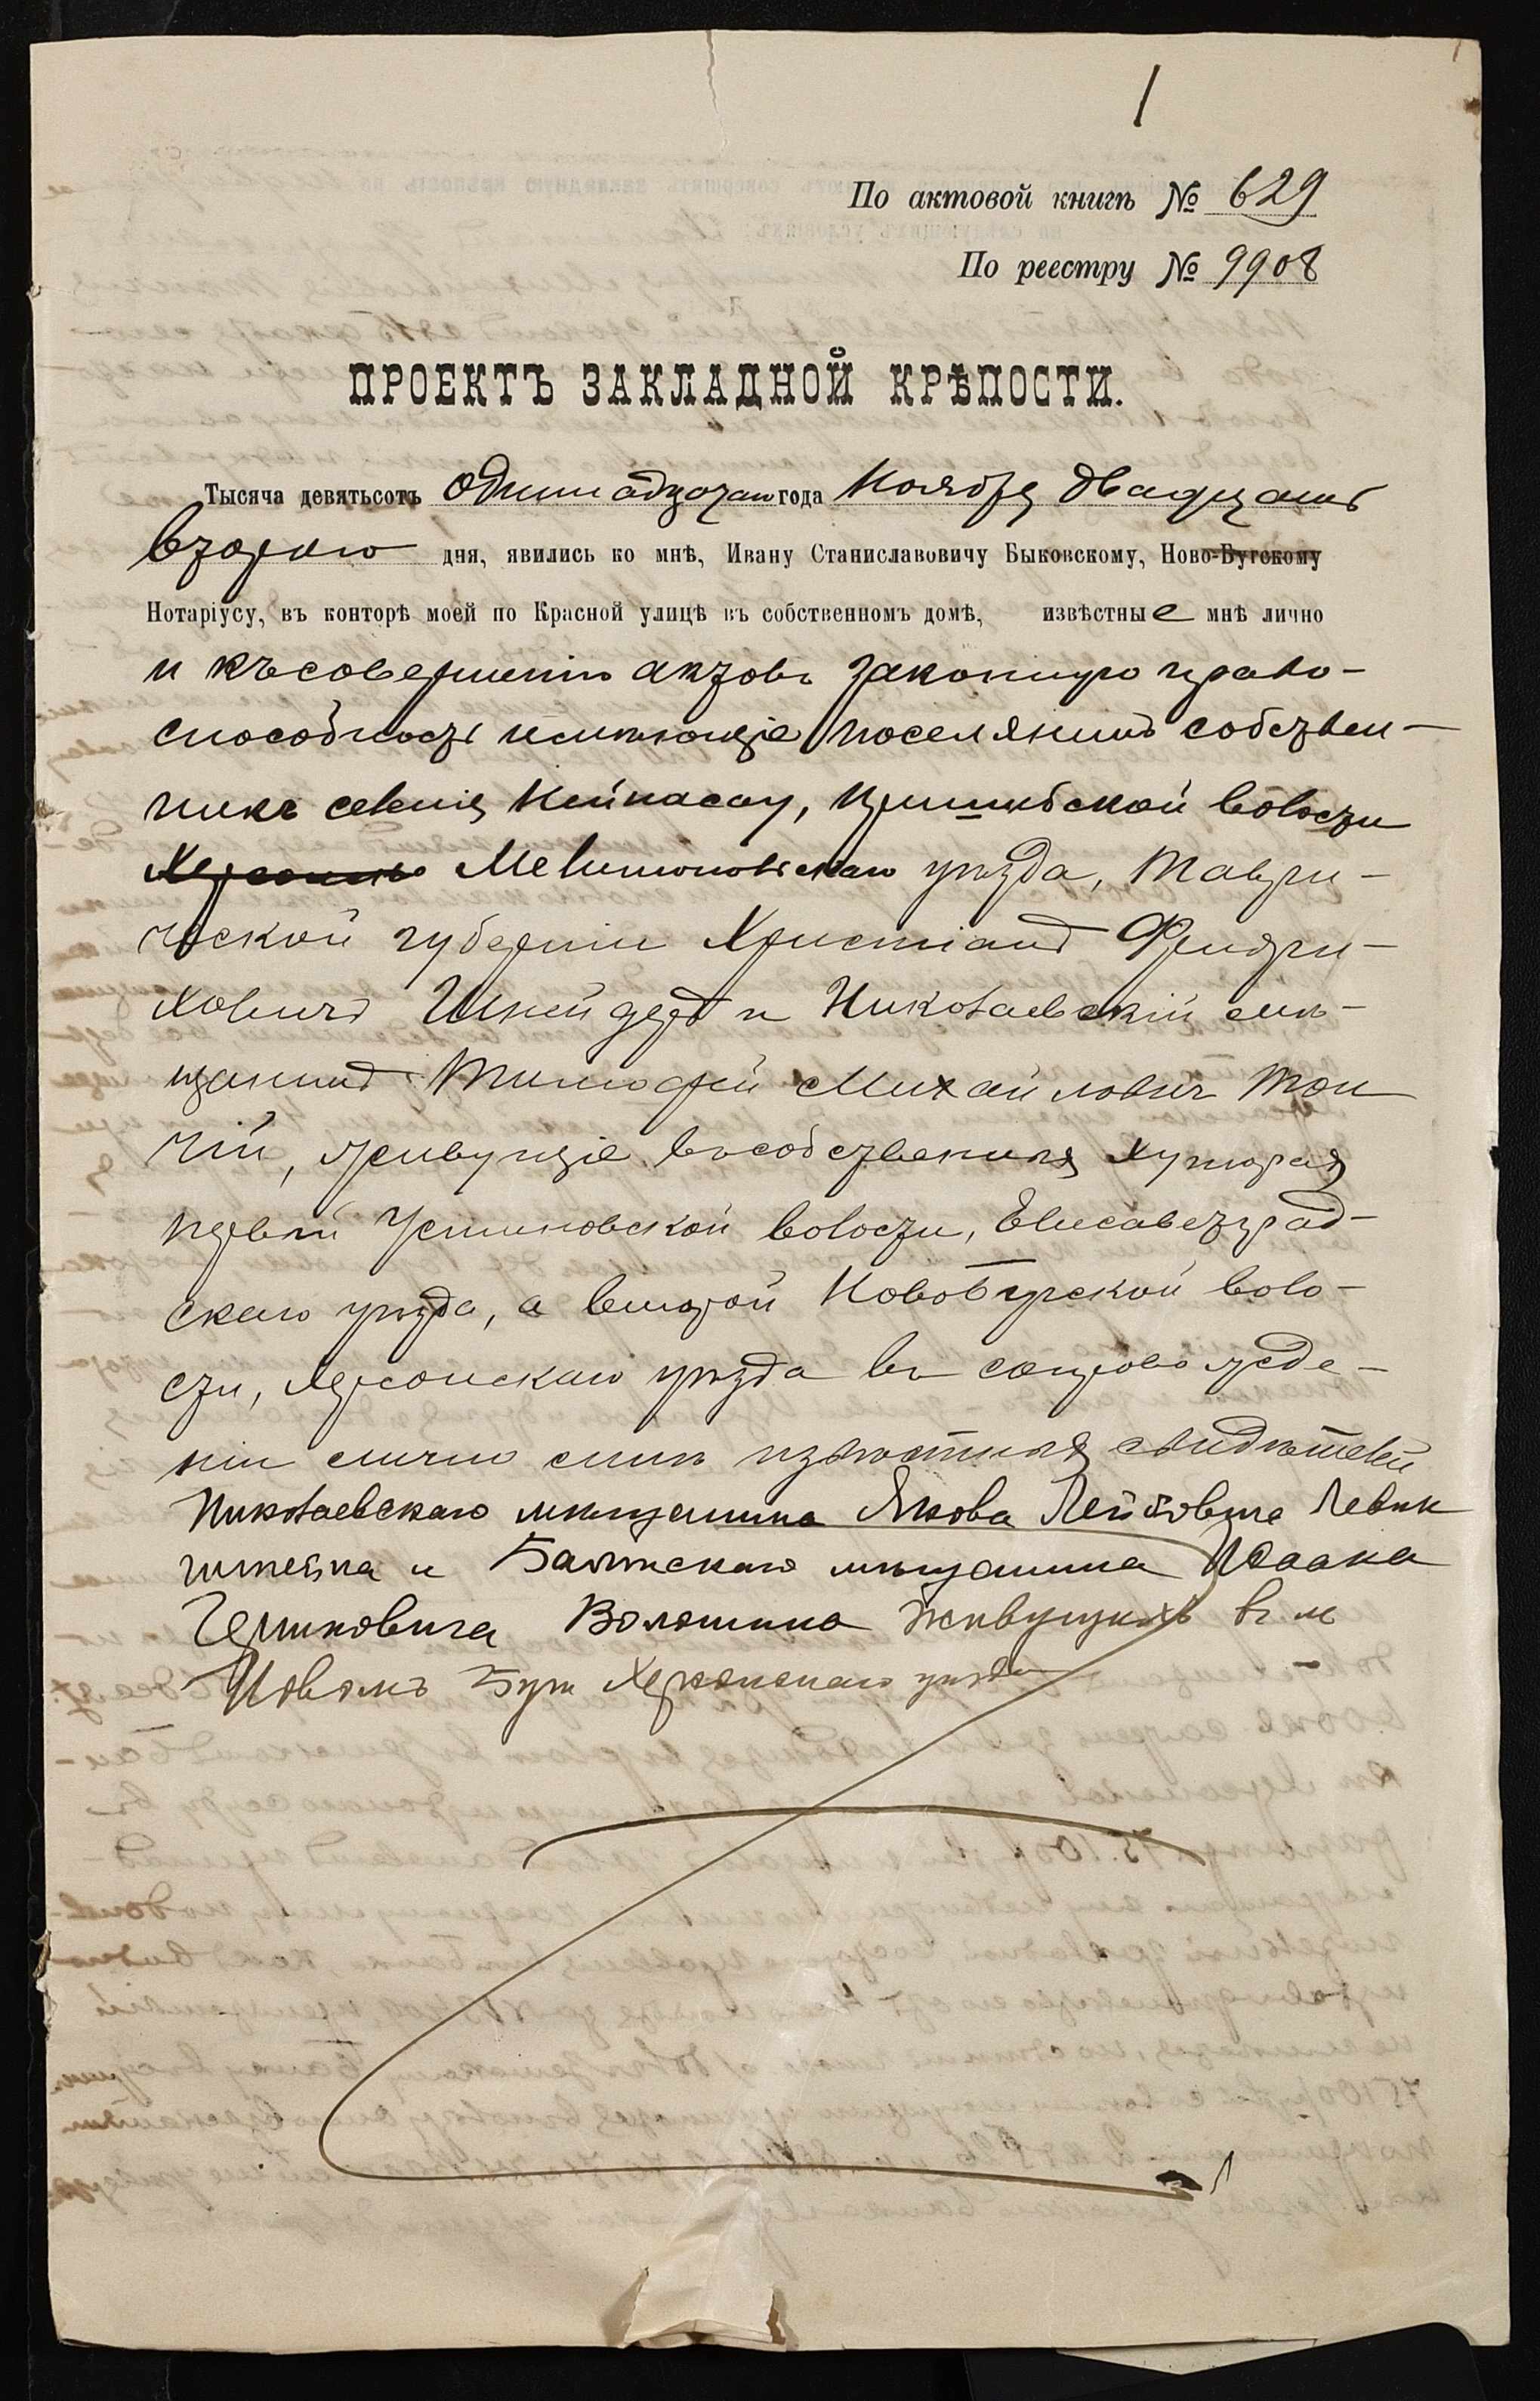 1
По актовой книгѣ № 629
По реестру № 9908
ПРОЕКТЪ ЗАКЛАДНОЙ КРѢПОСТИ.
Тысяча девятьсотъ одиннадцатаго года Ноября двадцать
второго дня, явились ко мнѣ, Ивану Станиславовичу Быковскому, Ново-Бугскому
Нотаріусу, въ конторѣ моей по Красной улицѣ въ собственномъ домѣ, извѣстные мнѣ лично
и къ совершенію актовъ законную право-
способность имѣющіе поселянинъ собствен-
никъ селенія Нейнасау, Пришибской волости
Мелитопольскаго уѣзда, Таври-
ческой губерніи Христіанъ Фридри-
ховичъ Шнейдеръ и Николаевскій мѣ-
щанинъ Тимофей Михайловичъ
живущіе въ собственныхъ хуторахъ
первый Устиновской волости, Елисаветград-
скаго уѣзда, а второй Новобугской воло-
сти, Херсонскаго уѣзда въ сопровожде-
ніи лично мнѣ извѣстныхъ свидѣтелей
Николаевскаго мѣщанина Якова Лейбовича Левин
штейна и Балтскаго мѣщанина Исаака
Гершковича Волошина живущихъ въ м
Новомъ Бугѣ Херсонскаго уѣзда